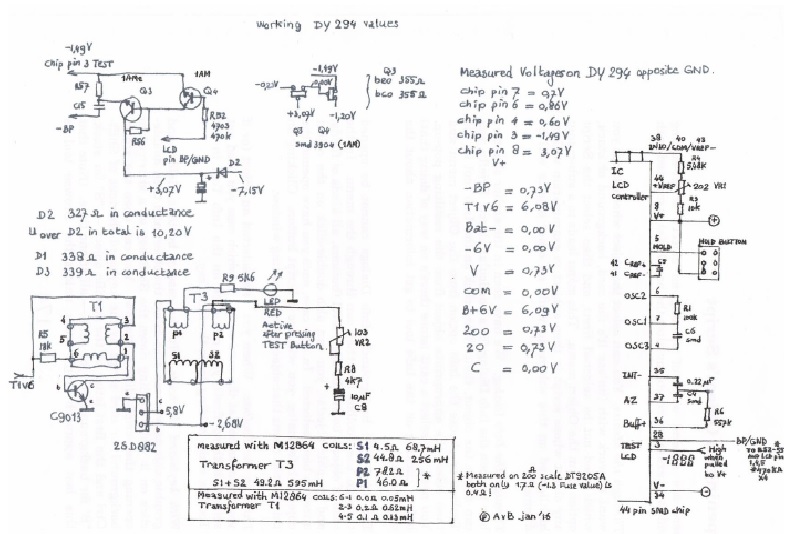 Working DY 294 values
-1,49V
Chip pin 3 TEST
1AMe
1AM
R57
Q3
Q4
C15
R52
470Ω
470K
-BP
R56
LCD
pin BP/GND
D2
+3,07V
-7,15V
-1,49V
0,00V
-0,23V
+3,07V
-1,20V
Q3
Q4
smd 3904 (1AM)
Q3
beo 355Ω
bco 355Ω
D2 327 Ω in conductance
U over D2 in total is 10,20V
D1 338 Ω in conductance
D3 339 Ω in conductance
Measured Voltages on DY 294 opposite GND.
chip pin 7 = 97V
chip pin 6 = 0,86V
chip pin 4 = 0,60V
chip pin 3 = -1,49V
chip pin 8 = 3,07V
V+
-BP = 0,73V
T1V6 = 6,08V
Bat- = 0,00V
-6V = 0,00V
V = 0,73V
COM = 0,00V
B+6V = 6,09V
200 = 0,73V
20 = 0,73V
C = 0,00V
T1
4
3
5
2
6
1
R5
18K
T1V6
C9013
b
c
e
2SD882
c
e
b
5,8V
-2,68V
T3
P1
P2
S1
S2
R9 5K6
LED
RED
Active
after pressing
TEST Button
103
VR2
R8
4K7
10μF
C8
38 40 43
IC
LCD
Controller
44
+VREF
202 VR1
R4
5,48K
R3
10K
8
V+
5
HOLD
HOLD BUTTON
42 CREF+
41 CREF-
C7
OSC2
6
R1
100K
OSC1
7
C6
smd
OSC3
4
INT-
35
0.22μF
AZ
37
C4
smd
Buff+
36
R6
557K
28
BP/GND
TEST
3
High
when
pulled
to V+
LCD
-1888
V-
34
44 pin SMD chip
measured with M12864 COILS: S1 4.5Ω 68,7mH
S2 44.8Ω 256mH
Transformer T3
P2 782Ω
S1+S2 49.2Ω 595mH
P1 46.0Ω
*
Measured with M12864 COILS: 6-1 0.0Ω 0.05mH
Transformer T1
2-3 0.2Ω 0.62mH
4-5 0.1Ω 0.83mH
* Measured on 200 Ω scale DT9205A
both only 1,7Ω (-1.3 Fuse value) is
0.4Ω!
© AvB jan '16